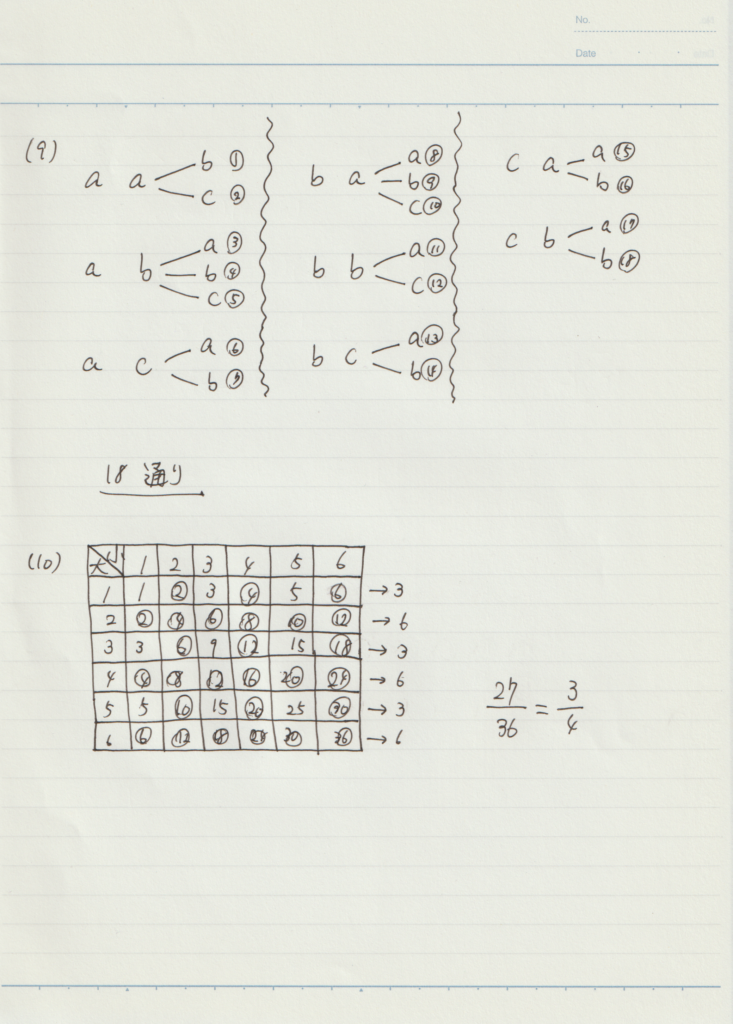 No.
Date
(9)
a a b ① c ②
a b a ③ b ④ c ⑤
a c a ⑥ b ⑦
b a a ⑧ b ⑨ c ⑩
b b a ⑪ c ⑫
b c a ⑬ b ⑭
c a a ⑮ b ⑯
c b a ⑰ b ⑱
18 通り
(10)
大 小 1 2 3 4 5 6
1 1 ② 3 ④ 5 ⑥ → 3
2 ② ④ ⑥ ⑧ ⑩ ⑫ → 6
3 3 ⑥ 9 ⑫ 15 ⑱ → 3
4 ④ ⑧ ⑫ ⑯ ⑳ ㉔ → 6
5 5 ⑩ 15 ⑳ 25 ㉚ → 3
6 ⑥ ⑫ ⑱ ㉔ ㉚ ㊱ → 6
27/36 = 3/4